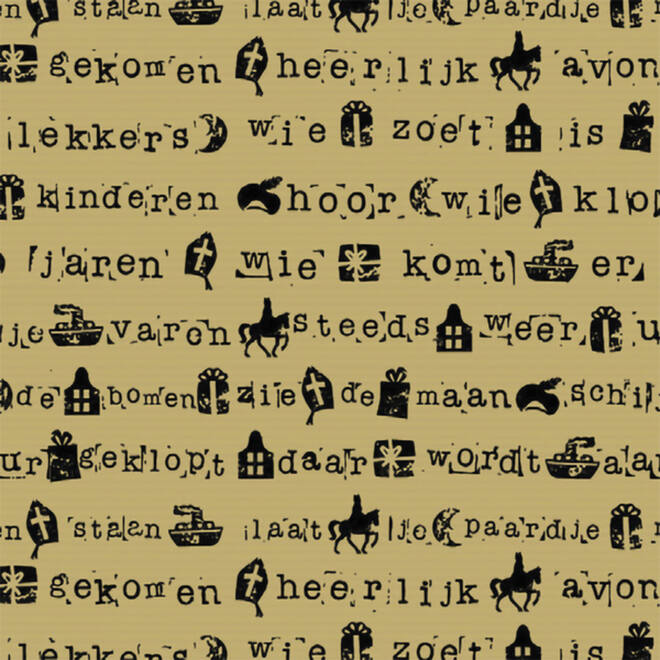 en staan laat je paardje
gekomen heerlijk avon
lekkers wie zoet is
kinderen hoor wie klop
jaren wie komt er
je varen steeds weer u
de bomen zie de maan schij
ur geklopt daar wordt aa
en staan laat je paardje
gekomen heerlijk avon
lekkers wie zoet is